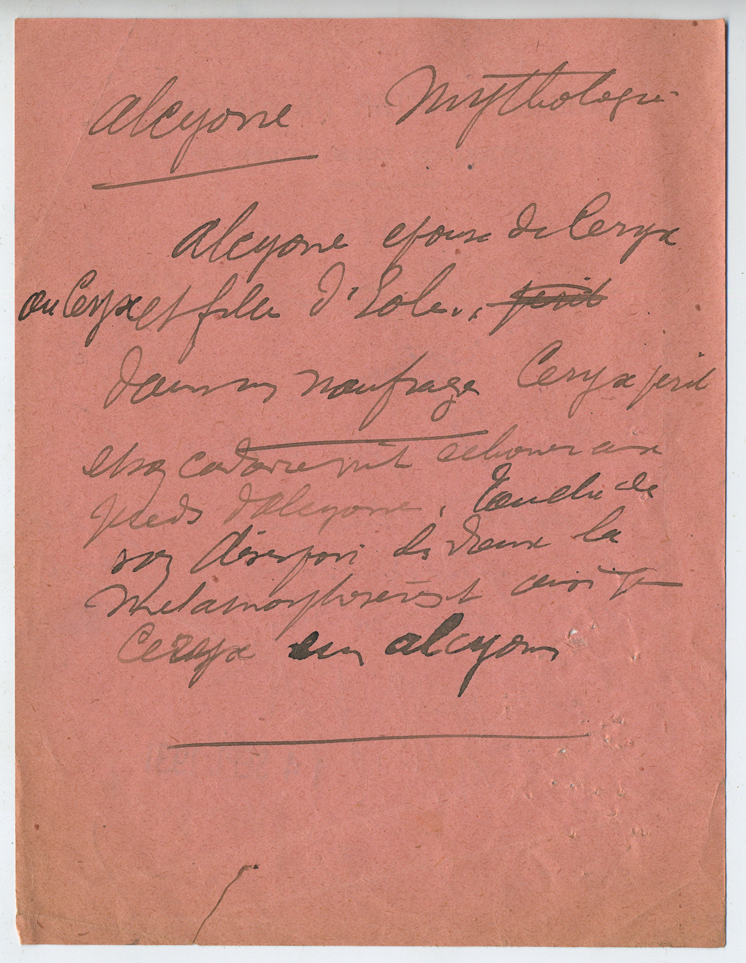 Alcyone Mythologie
Alcyone epouse de Ceryx
ou Ceyx et fille d'Eole., perit
dans un naufrage Ceryx perit
et son cadavre vint echouer aux
pieds d'Alcyone. Touchés de
son désespoir les dieux la
metamorphosèrent ainsi que
Ceryx en alcyons